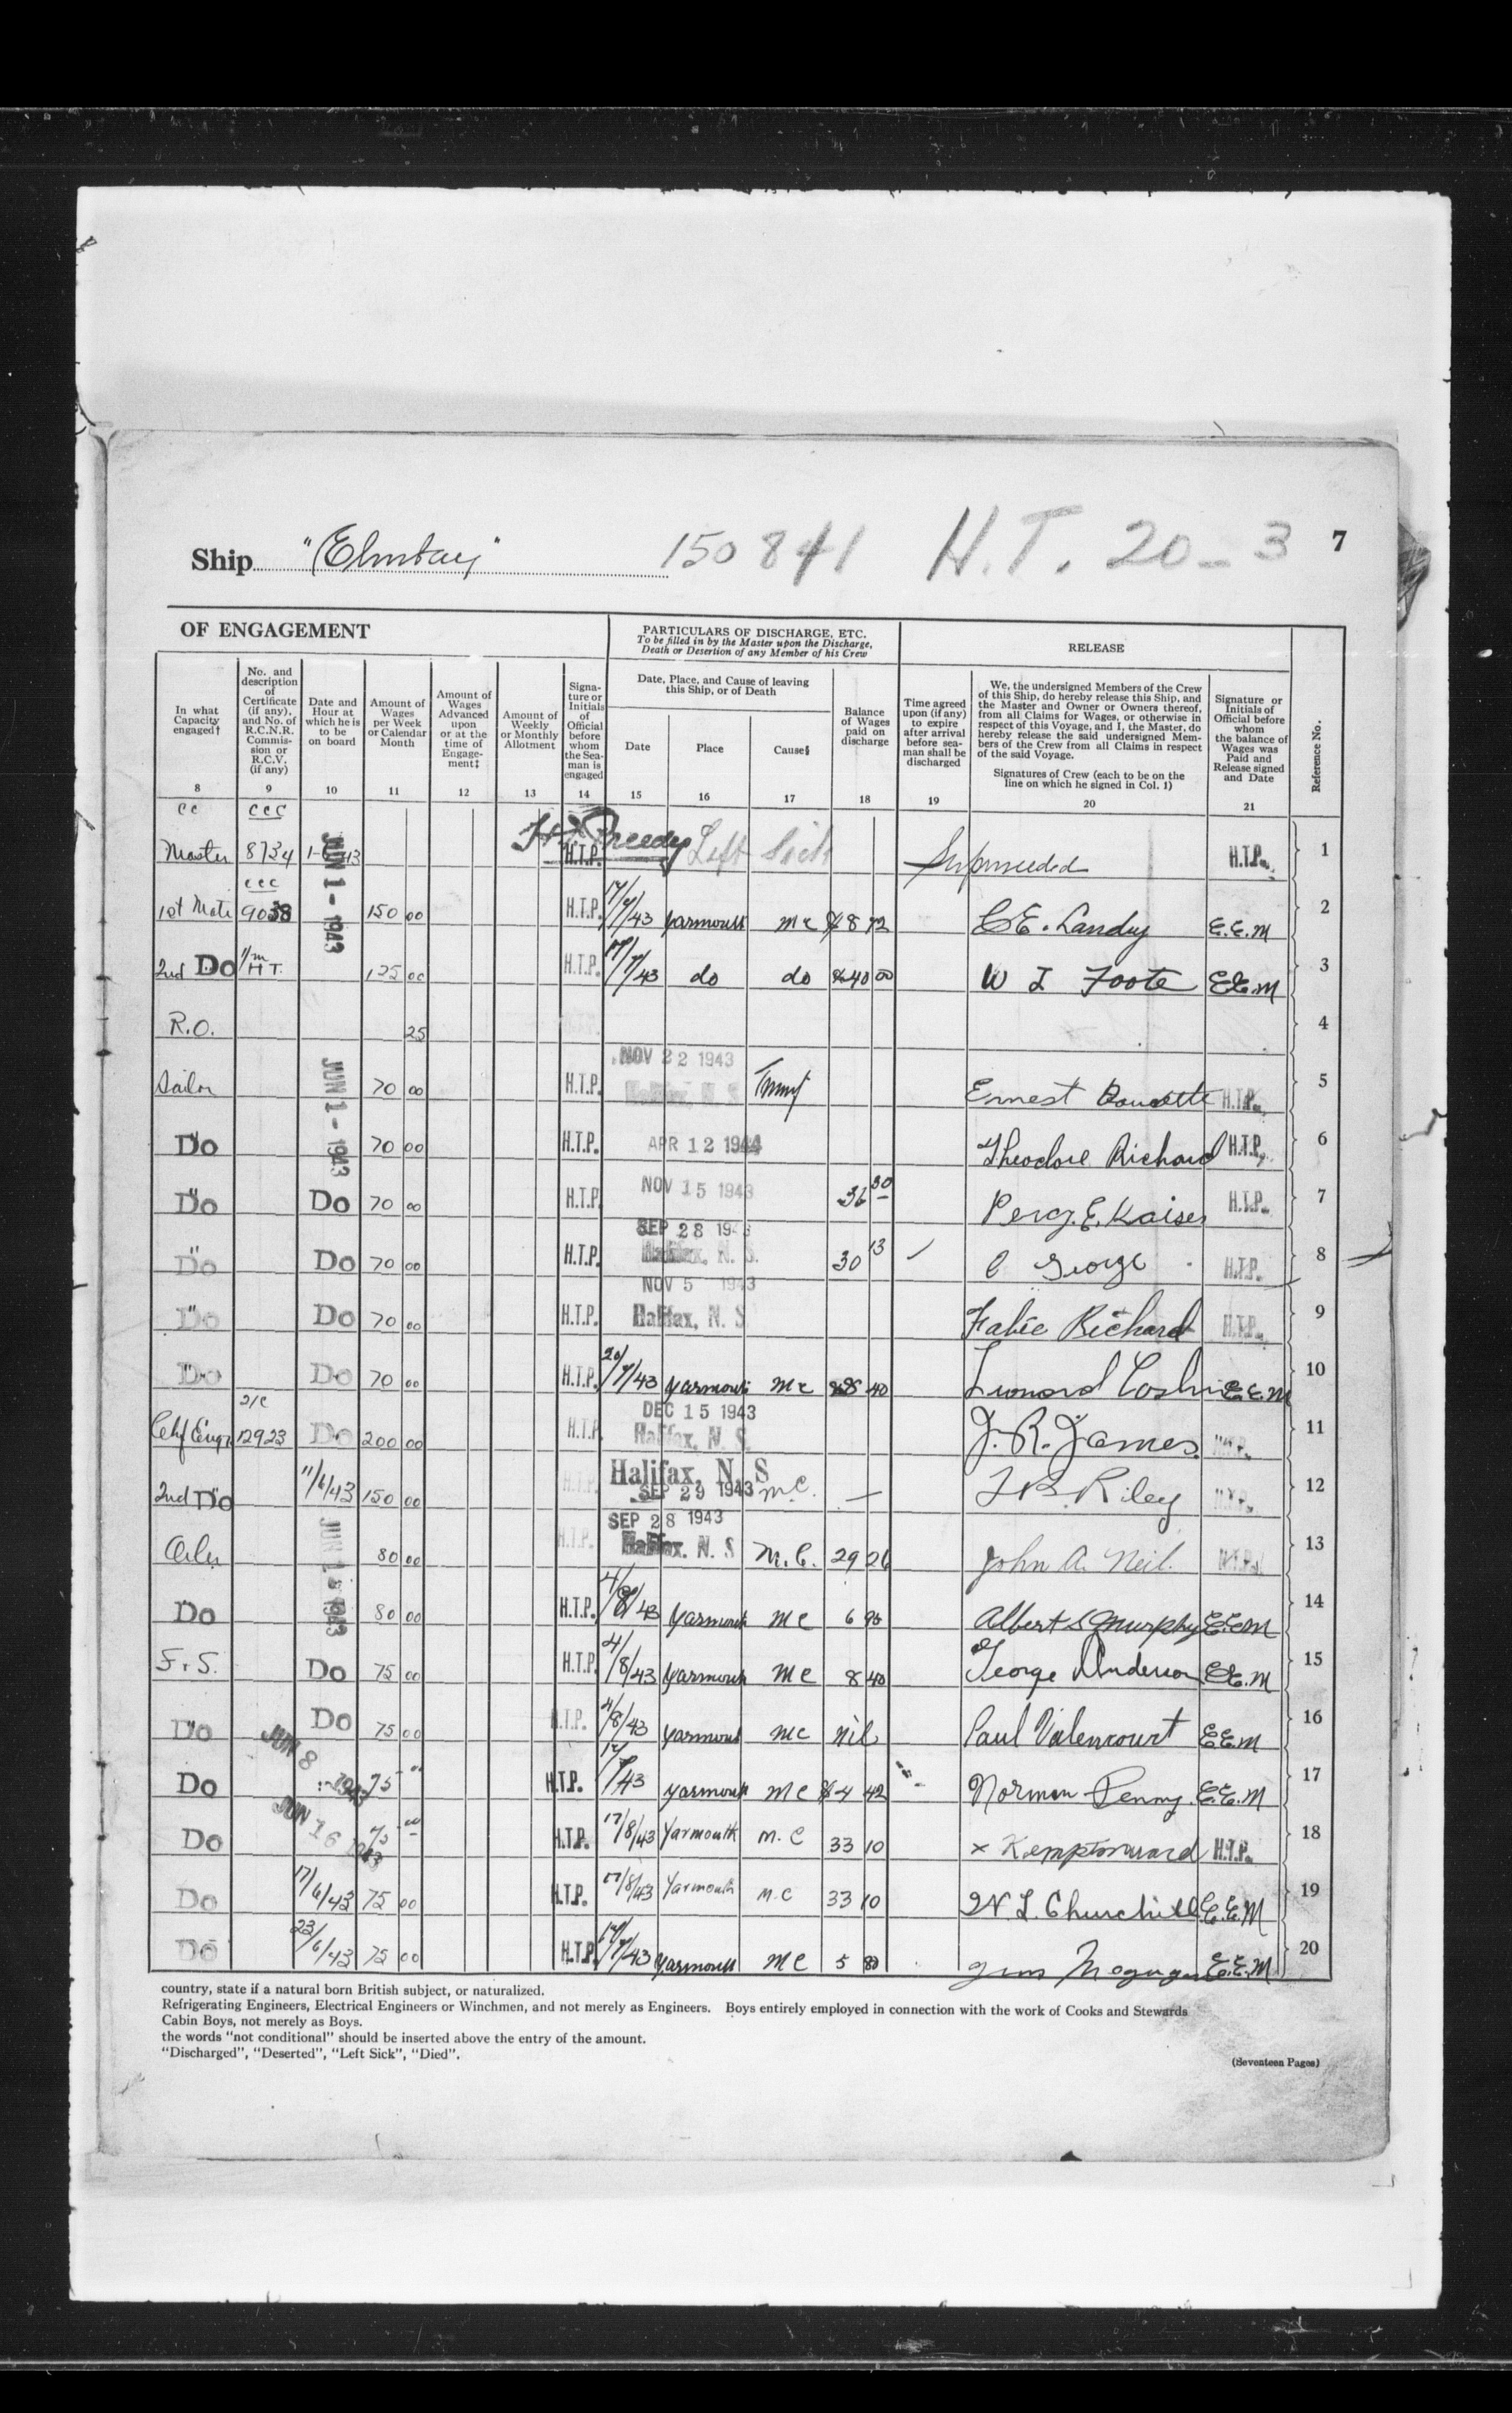 Ship "Elmbay" 150841 H.T. 20-3 7
OF ENGAGEMENT
PARTICULARS OF DISCHARGE, ETC.
To be filled in by the Master upon the Discharge,
Death or Desertion of any Member of his Crew
RELEASE
In what
Capacity
engaged†
8
No. and
description
of
Certificate
(if any),
and No. of
R.C.N.R.
Commis-
sion or
R.C.V.
(if any)
9
Date and
Hour at
which he is
to be
on board
10
Amount of
Wages
per Week
or Calendar
Month
11
Amount of
Wages
Advanced
upon
or at the
time of
Engage-
ment‡
12
Amount of
Weekly
or Monthly
Allotment
13
Signa-
ture or
Initials
of
Official
before
whom
the Sea-
man is
engaged
14
Date, Place, and Cause of leaving
this Ship, or of Death
Date
15
Place
16
Cause§
17
Balance
of Wages
paid on
discharge
18
Time agreed
upon (if any)
to expire
after arrival
before sea-
man shall be
discharged
19
We, the undersigned Members of the Crew
of this Ship, do hereby release this Ship, and
the Master and Owner or Owners thereof,
from all Claims for Wages, or otherwise in
respect of this Voyage, and I, the Master, do
hereby release the said undersigned Mem-
bers of the Crew from all Claims in respect
of the said Voyage.
Signatures of Crew (each to be on the
line on which he signed in Col. 1)
20
Signature or
Initials of
Official before
whom
the balance of
Wages was
Paid and
Release signed
and Date
21
Reference No.
CC CCC
Master 8734 JUN 1 - 1943 H.T.P. Left Sick Superseeded H.T.P. 1
CCC
1st Mate 150 00 H.T.P. 17/7/43 Yarmouth MC 8 72 C E. Landry E.E.M 2
2nd Do H T. 125 00 H.T.P. 17/7/43 do do 40 00 W I Foote E.E.M 3
R.O. 25 4
Sailor JUN 1 - 1943 70 00 H.T.P. NOV 22 1943 Halifax, N. S. Ernest Doucette H.T.P. 5
Do 70 00 H.T.P. APR 12 1944 Theodore Richard H.T.P. 6
Do Do 70 00 H.T.P. NOV 15 1943 36 30 Percy. E. Kaiser H.T.P. 7
Do Do 70 00 H.T.P. SEP 28 194 Halifax, N. S. 30 13 C George H.T.P. 8
Do Do 70 00 H.T.P. NOV 5 1943 Halifax, N. S. Richard H.T.P. 9
Do Do 70 00 H.T.P. 20/7/43 Yarmouth MC 40 E.E.M 10
Chf Engr 12923 Do 200 00 H.T.P. DEC 15 1943 Halifax, N. S. J. R. James. H.T.P. 11
2nd Do 11/6/43 150 00 H.T.P. Halifax, N. S SEP 29 1943 M.C. — Riley H.T.P. 12
Oiler 80 00 H.T.P. SEP 28 1943 Halifax. N. S M.C. 29 26 John A. Neil. H.T.P. 13
Do 80 00 H.T.P. 4/8/43 Yarmouth MC 6 Albert S Murphy E.E.M 14
F. S. Do 75 00 H.T.P. 4/8/43 Yarmouth MC 8 40 George Anderson E.E.M 15
Do Do 75 00 H.T.P. 4/8/43 Yarmouth MC nil Paul Valencourt E.E.M 16
Do JUN 8 1943 75 00 H.T.P. 17/7/43 Yarmouth MC 4 42 Norman Penny. E.E.M 17
Do JUN 16 1943 75 00 H.T.P. 17/8/43 Yarmouth M.C 33 10 x H.T.P. 18
Do 17/6/43 75 00 H.T.P. 17/8/43 Yarmouth M.C 33 10 W. L. Churchill E.E.M 19
Do 23/6/43 75 00 H.T.P. 17/7/43 Yarmouth MC 5 80 E.E.M 20
country, state if a natural born British subject, or naturalized.
Refrigerating Engineers, Electrical Engineers or Winchmen, and not merely as Engineers. Boys entirely employed in connection with the work of Cooks and Stewards
Cabin Boys, not merely as Boys.
the words "not conditional" should be inserted above the entry of the amount.
"Discharged", "Deserted", "Left Sick", "Died".
(Seventeen Pages)